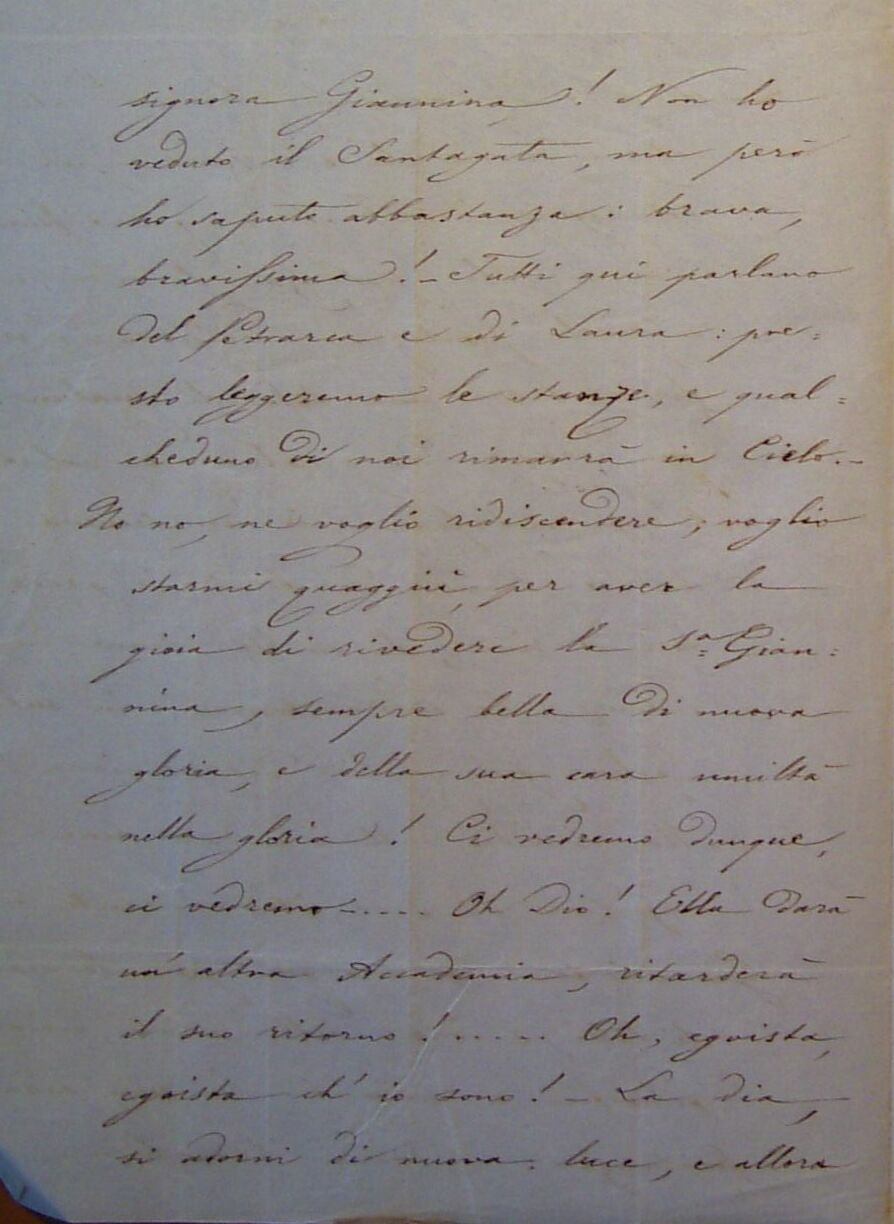 signora Giannina! Non ho
veduto il Santagata, ma però
ho saputo abbastanza: brava,
bravissima! - Tutti qui parlano
del Petrarca e di Laura: pre=
sto leggeremo le stanze, e qual=
cheduno di noi rimarrà in Cielo. -
No no, ne voglio ridiscendere; voglio
starmi quaggiù, per aver la
gioia di rivedere la S.ª Gian=
nina, sempre bella di nuova
gloria, e della sua cara umiltà
nella gloria! Ci vedremo dunque,
ci vedremo..... Oh Dio! Ella darà
un'altra Accademia, ritarderà
il suo ritorno!..... Oh, egoista,
egoista ch'io sono! - La dia,
si adorni di nuova luce, e allora